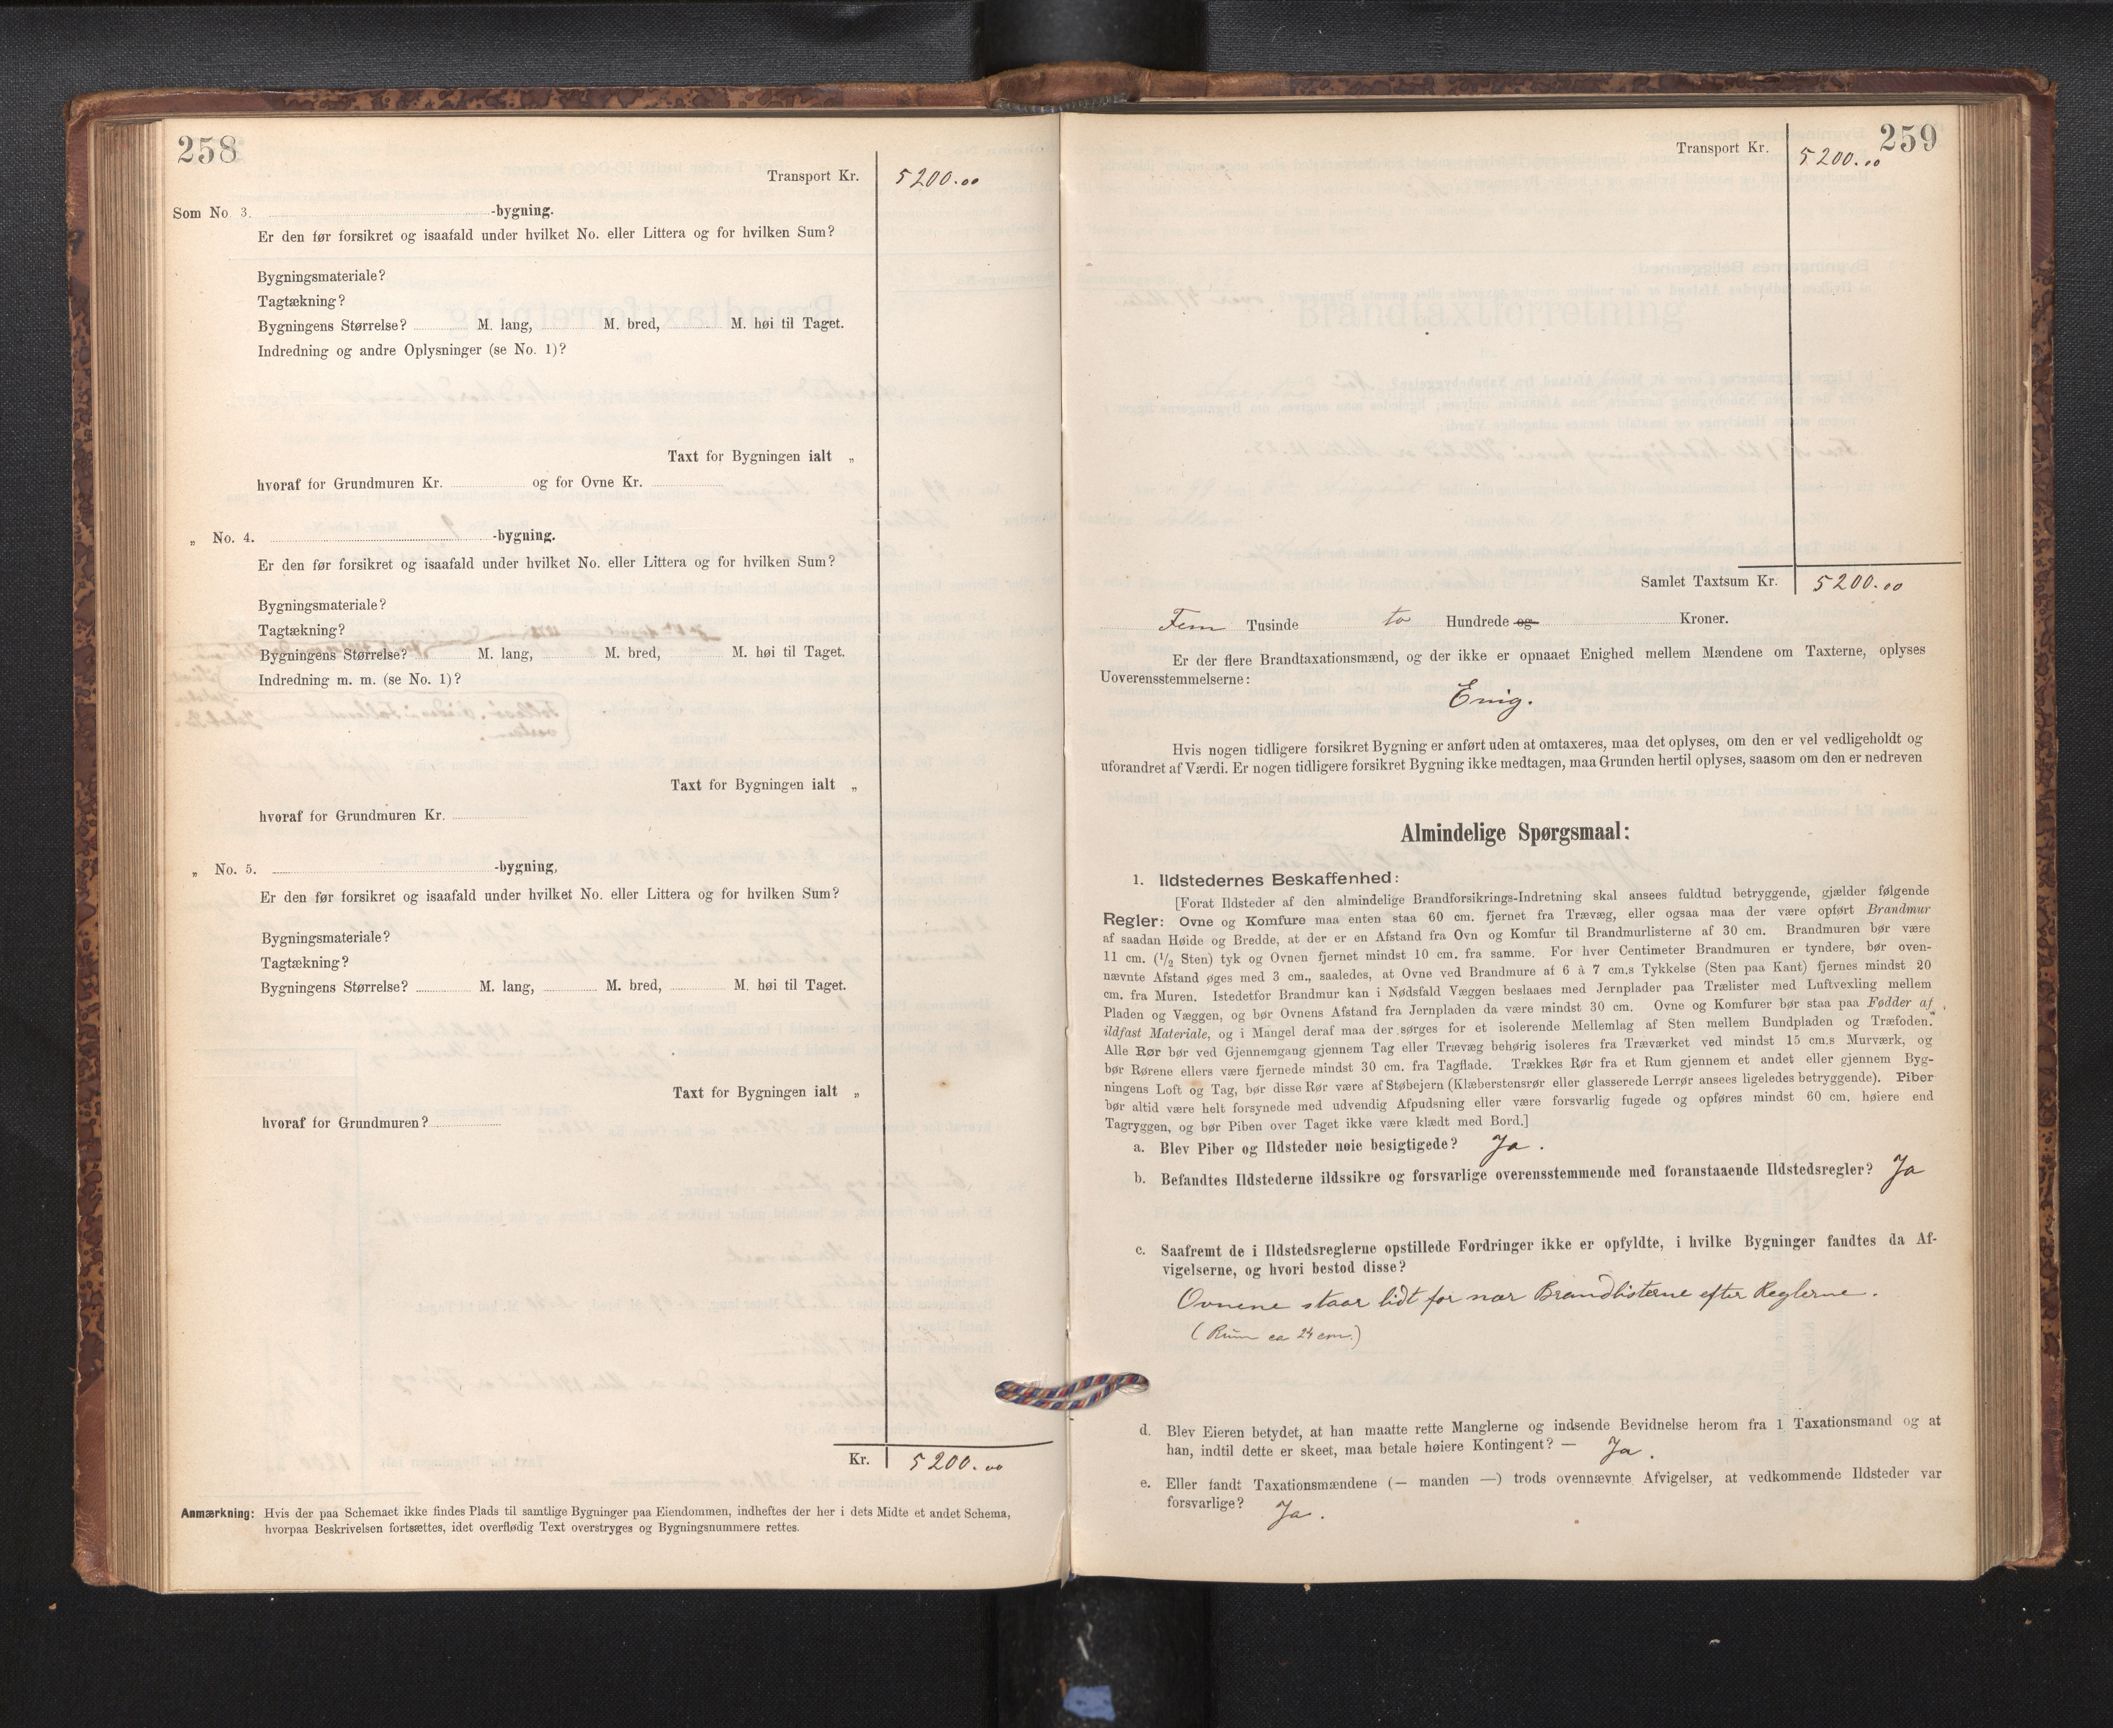 258
Transport Kr. 5200.00
Som No 3. -bygning.
Er den før forsikret og isaafald under hvilket No. eller Littera og for hvilken Sum?
Bygningsmateriale?
Tagtækning?
Bygningens Størrelse? M. lang, M. bred, M. høi til Taget.
Indredning og andre Oplysninger (se No. 1)?
Taxt for Bygningen ialt „
hvoraf for Grundmuren Kr. og for Ovne Kr.
„ No. 4. -bygning.
Er den før forsikret og isaafald under hvilket No. eller Littera og for hvilken Sum?
Bygningsmateriale?
Tagtækning?
Bygningens Størrelse? M. lang, M. bred, M. høi til Taget.
Indredning m. m. (se No. 1)?
Taxt for Bygningen ialt „
hvoraf for Grundmuren Kr.
„ No. 5. -bygning,
Er den før forsikret og isaafald under hvilket No. eller Littera og for hvilken Sum?
Bygningsmateriale?
Tagtækning?
Bygningens Størrelse? M. lang, M. bred, M. høi til Taget.
Taxt for Bygningen ialt „
hvoraf for Grundmuren?
Kr. 5200.00
Anmærkning: Hvis der paa Schemaet ikke findes Plads til samtlige Bygninger paa Eiendommen, indheftes der her i dets Midte et andet Schema,
hvorpaa Beskrivelsen fortsættes, idet overflødig Text overstryges og Bygningsnummere rettes.
259
Transport Kr. 5200.00
Samlet Taxtsum Kr. 5200.00
Fem Tusinde to Hundrede og Kroner.
Er der flere Brandtaxationsmænd, og der ikke er opnaaet Enighed mellem Mændene om Taxterne, oplyses
Uoverensstemmelserne:
Enig.
Hvis nogen tidligere forsikret Bygning er anført uden at omtaxeres, maa det oplyses, om den er vel vedligeholdt og
uforandret af Værdi. Er nogen tidligere forsikret Bygning ikke medtagen, maa Grunden hertil oplyses, saasom om den er nedreven
Almindelige Spørgsmaal:
1. Ildstedernes Beskaffenhed:
[Forat Ildsteder af den almindelige Brandforsikrings-Indretning skal ansees fuldtud betryggende, gjælder følgende
Regler: Ovne og Komfure maa enten staa 60 cm. fjernet fra Trævæg, eller ogsaa maa der være opført Brandmur
af saadan Høide og Bredde, at der er en Afstand fra Ovn og Komfur til Brandmurlisterne af 30 cm. Brandmuren bør være
11 cm. (1/2 Sten) tyk og Ovnen fjernet mindst 10 cm. fra samme. For hver Centimeter Brandmuren er tyndere, bør oven-
nævnte Afstand øges med 3 cm., saaledes, at Ovne ved Brandmure af 6 à 7 cm.s Tykkelse (Sten paa Kant) fjernes mindst 20
cm. fra Muren. Istedetfor Brandmur kan i Nødsfald Væggen beslaaes med Jernplader paa Trælister med Luftvexling mellem
Pladen og Væggen, og bør Ovnens Afstand fra Jernpladen da være mindst 30 cm. Ovne og Komfurer bør staa paa Fødder af
ildfast Materiale, og i Mangel deraf maa der sørges for et isolerende Mellemlag af Sten mellem Bundpladen og Træfoden.
Alle Rør bør ved Gjennemgang gjennem Tag eller Trævæg behørig isoleres fra Træværket ved mindst 15 cm.s Murværk, og
bør Rørene ellers være fjernede mindst 30 cm. fra Tagflade. Trækkes Rør fra et Rum gjennem et andet eller gjennem Byg-
ningens Loft og Tag, bør disse Rør være af Støbejern (Klæberstensrør eller glasserede Lerrør ansees ligeledes betryggende). Piber
bør altid være helt forsynede med udvendig Afpudsning eller være forsvarlig fugede og opføres mindst 60 cm. høiere end
Tagryggen, og bør Piben over Taget ikke være klædt med Bord.]
a. Blev Piber og Ildsteder nøie besigtigede? Ja.
b. Befandtes Ildstederne ildssikre og forsvarlige overensstemmende med foranstaaende Ildstedsregler? Ja
c. Saafremt de i Ildstedsreglerne opstillede Fordringer ikke er opfyldte, i hvilke Bygninger fandtes da Af-
vigelserne, og hvori bestod disse?
Ovnene staar lidt for nær Brandlisterne efter Reglerne.
(Rum ca 24 cm.)
d. Blev Eieren betydet, at han maatte rette Manglerne og indsende Bevidnelse herom fra 1 Taxationsmand og at
han, indtil dette er skeet, maa betale høiere Kontingent? — Ja.
e. Eller fandt Taxationsmændene (— manden —) trods ovennævnte Afvigelser, at vedkommende Ildsteder var
forsvarlige? Ja.